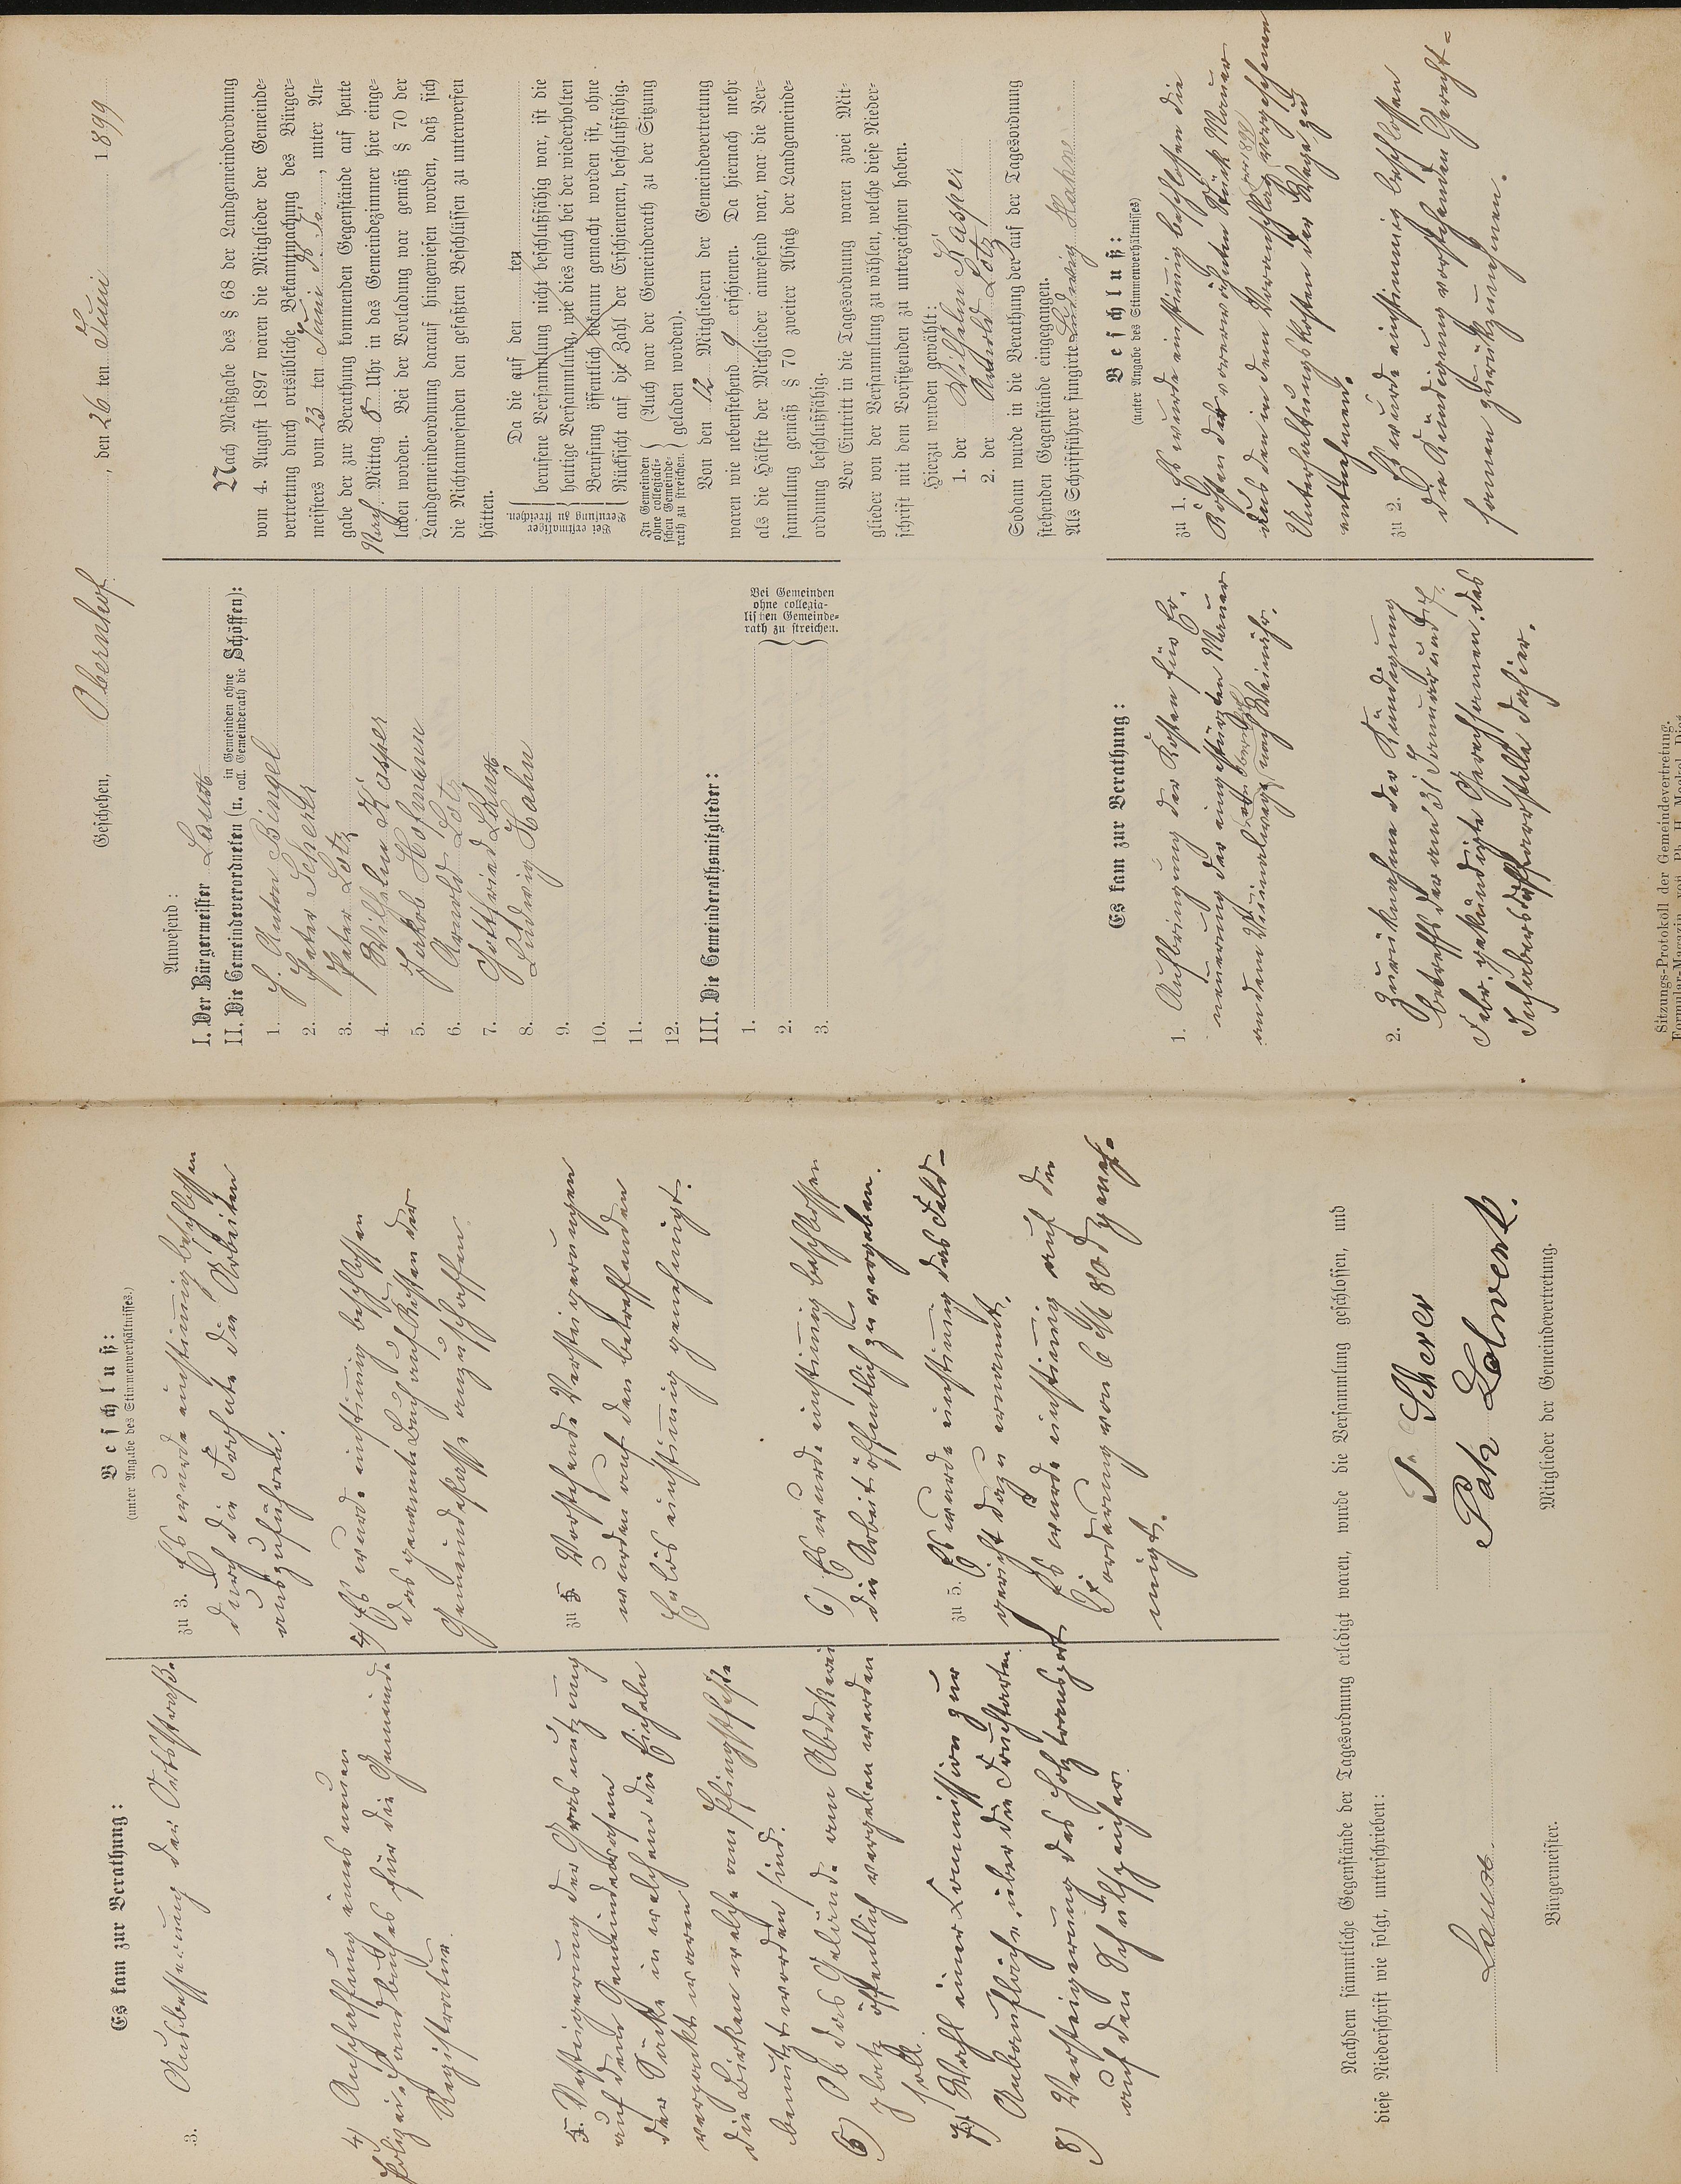 Geschehen, Obernhof, den 26 ten Juni 1899
Anwesend:
I. Der Bürgermeister Laux
II. Die Gemeindeverordneten (u. in Gemeinden ohne coll. Gemeinderath die Schöffen):
1. J. Anton Bingel
2. Peter Scherer
3. Peter Lotz
4. Wilhelm Kasper
5. Jakob Hofmann
6. Arnold Lotz
7. Gottfried Laux
8. Ludwig Hahn
9.
10.
11.
12.
III. Die Gemeinderathsmitglieder:
1.
2.
3.
Bei Gemeinden
ohne collegia-
lischen Gemeinde-
rath zu streichen.
Nach Maßgabe des § 68 der Landgemeindeordnung
vom 4. August 1897 waren die Mitglieder der Gemeinde-
vertretung durch ortsübliche Bekanntmachung des Bürger-
meisters vom 23 ten Juni, unter An-
gabe der zur Berathung kommenden Gegenstände auf heute
Nach Mittag 8 Uhr in das Gemeindezimmer hier einge-
laden worden. Bei der Vorladung war gemäß § 70 der
Landgemeindeordnung darauf hingewiesen worden, daß sich
die Nichtanwesenden den gefaßten Beschlüssen zu unterwerfen
hätten.
Bei erstmaliger
Berufung zu streichen.
Da die auf den ten
berufene Versammlung nicht beschlußfähig war, ist die
heutige Versammlung, wie dies auch bei der wiederholten
Berufung öffentlich bekannt gemacht worden ist, ohne
Rücksicht auf die Zahl der Erschienenen, beschlußfähig.
In Gemeinden
ohne collegiali-
schen Gemeinde-
rath zu streichen.
(Auch war der Gemeinderath zu der Sitzung
geladen worden).
Von den 12 Mitgliedern der Gemeindevertretung
waren wie nebenstehend 9 erschienen. Da hiernach mehr
als die Hälfte der Mitglieder anwesend war, war die Ver-
sammlung gemäß § 70 zweiter Absatz der Landgemeinde-
ordnung beschlußfähig.
Vor Eintritt in die Tagesordnung waren zwei Mit-
glieder von der Versammlung zu wählen, welche diese Nieder-
schrift mit dem Vorsitzenden zu unterzeichnen haben.
Hierzu wurden gewählt:
1. der Wilhelm Kasper
2. der Arnold Lotz
Sodann wurde in die Berathung der auf der Tagesordnung
stehenden Gegenstände eingegangen.
Als Schriftführer fungirte Ludwig Hahn
Es kam zur Berathung:
1. Aufbringung der Kosten für Er-
neuerung der eingestürzten Mauer
an dem Vicinalwege von Obernhof nach Weinähr.
2. Zurücknahme der Kündigung
betreffs der am 31 Januar und 7.
Febr. gekündigte Gerechsamen des
Inhabers der Pfarrstelle dahier.
Beschluß:
(unter Angabe des Stimmenverhältnisses)
zu 1. Es wurde einstimmig beschlossen die
Kosten der vorerwähnten Stück Mauer
aus den in dem Voranschlag pro 1899 vorgesehenen
Unterhaltungskosten der Wege zu
entnehmen.
zu 2. Es wurde einstimmig beschlossen
die Kündigung vorstehenden Gerecht-
samen zurückzunehmen.
Sitzungs-Protokoll der Gemeindevertretung.
Es kam zur Berathung:
3. Ausbesserung der Ortsstraße
4) Anschaffung eines neuen
Polizeihandbuches für die Gemeinde
Registratur.
5. Versteigerung der Grasnutzung
auf dem Gemeinderasen
der Säcke in welchen die Eicheln
verpackt waren
die Birken welche am Pfingstfeste
benutzt worden sind.
6) Ob das Gelände am Abdekerei
platz öffentlich vergeben werden
soll.
7) Wahl einer Commission zur
Anbaufläche, über die Fruchtarten
8) Versteigerung des Holztransport
auf den Schulspeicher.
Beschluß:
(unter Angabe des Stimmenverhältnisses.)
zu 3. Es wurde einstimmig beschlossen
durch die Frohnde die Arbeiten
auszuführen.
4) Es wurde einstimmig beschlossen
das genannte Buch auf Kosten der
Gemeindekasse anzuschaffen.
zu 5 Vorstehende Versteigerungen
wurden auf den betreffenden
Erlös einstimmig genehmigt.
6) Es wurde einstimmig beschlossen
die Arbeit öffentlich zu vergeben.
zu 5. Es wurde einstimmig das Feld-
gericht dazu ernannt.
Es wurde einstimmig auf die
Forderung von 6 M 80 d geneh-
migt.
Nachdem sämmtliche Gegenstände der Tagesordnung erledigt waren, wurde die Versammlung geschlossen, und
diese Niederschrift wie folgt, unterschrieben:
Laux
Bürgermeister.
Scherer
Mitglieder der Gemeindevertretung.